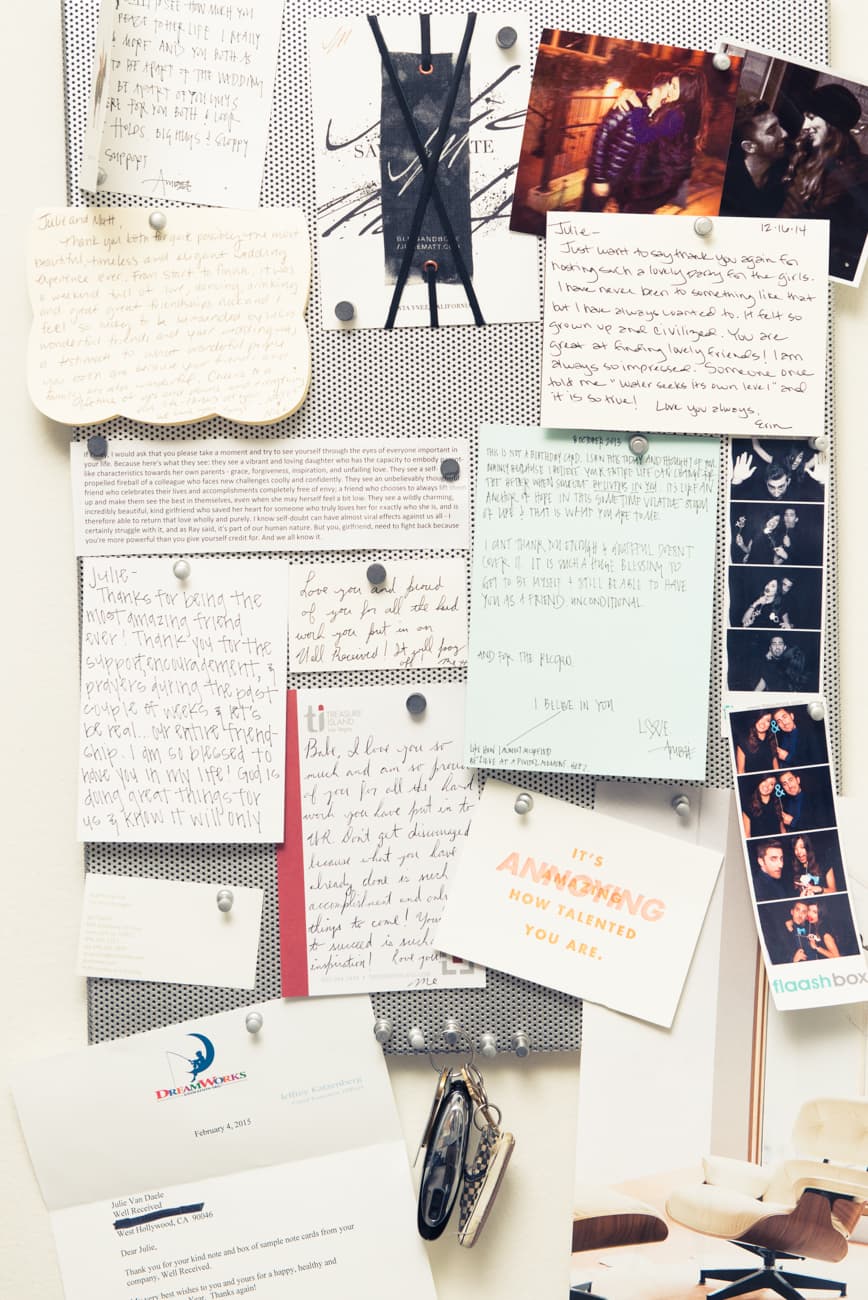 TO SEE HOW MUCH YOU
TO HER LIFE I REALLY
& MORE AND YOU BOTH AS
TO BE APART OF THE WEDDING
BE APART OF YOU GUYS
FOR YOU BOTH & LOOK
HOLDS BIG HUGS & SLOPPY
SUPPORT
SA TE
Julie and Matt,
Thank you both for
beautiful, timeless and elegant wedding
experience ever. From start to finish, it was
a weekend full of love, dancing, drinking
and great great friendships.
feel so lucky to be surrounded by
wonderful friends and your wedding was
a testiment to what wonderful people
you both are because your friends and
Julie- 12-16-14
Just want to say thank you again for
hosting such a lovely party for the girls.
I have never been to something like that
but I have always wanted to. It felt so
grown up and civilized. You are
great at finding lovely friends! I am
always so impressed. Someone once
told me "Water seeks its own level" and
it is so true! Love you always.
Erin
I would ask that you please take a moment and try to see yourself through the eyes of everyone important in
your life. Because here's what they see: they see a vibrant and loving daughter who has the capacity to embody
like characteristics towards her own parents - grace, forgiveness, inspiration, and unfailing love. They see a self-
propelled fireball of a colleague who faces new challenges coolly and confidently. They see an unbelievably
friend who celebrates their lives and accomplishments completely free of envy; a friend who chooses to always lift
up and make them see the best in themselves, even when she may herself feel a bit low. They see a wildly charming,
incredibly beautiful, kind girlfriend who saved her heart for someone who truly loves her for exactly who she is, and is
therefore able to return that love wholly and purely. I know self-doubt can have almost viral affects against us all - I
certainly struggle with it, and as Ray said, it's part of our human nature. But you, girlfriend, need to fight back because
you're more powerful than you give yourself credit for. And we all know it.
8 OCTOBER 2013
THIS IS NOT A BIRTHDAY CARD. I SAW THIS TODAY AND THOUGHT OF YOU
MAINLY BECAUSE I BELIEVE YOUR ENTIRE LIFE CAN CHANGE FOR
THE BETTER WHEN SOMEONE BELIEVES IN YOU. IT'S LIKE AN
ANCHOR OF HOPE IN THIS SOMETIME VOLATILE
OF LIFE & THAT IS WHAT YOU ARE TO ME.
I CAN'T THANK YOU ENOUGH & GRATEFUL DOESN'T
COVER IT. IT IS SUCH A HUGE BLESSING TO
GET TO BE MYSELF & STILL BE ABLE TO HAVE
YOU AS A FRIEND. UNCONDITIONAL.
AND FOR THE
I BELIEVE IN YOU
LOVE
AMBER
Julie-
Thanks for being the
most amazing friend
ever! Thank you for the
support, encouragement, &
prayers during the past
couple of weeks & let's
be real... our entire friend-
ship. I am so blessed to
have you in my life! God is
doing great things for
us & know it will only
Love you and proud
of you for all the hard
work you put in on
Well Received! It will pay
off!
ti TREASURE
ISLAND
Las Vegas
Babe, I love you so
much and am so proud
of you for all the hard
work you have put in to
WR. Don't get discouraged
because what you have
already done is such
accomplishment and only
things to come! Your
to succeed is such
inspiration! Love you
Me
IT'S
AMAZING
ANNOYING
HOW TALENTED
YOU ARE.
&
&
flaashbox
DREAMWORKS
Jeffrey Katzenberg
Chief Executive Officer
February 4, 2015
Julie Van Daele
Well Received
West Hollywood, CA 90046
Dear Julie,
Thank you for your kind note and box of sample note cards from your
company, Well Received.
very best wishes to you and yours for a happy, healthy and
Year. Thanks again!